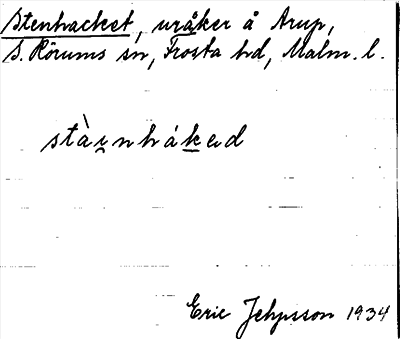 Stenhacket, uråker å Arup,
S. Rörums sn, Frosta hd, Malm. l.
stài̯nhákəd
Eric Jehpsson 1934